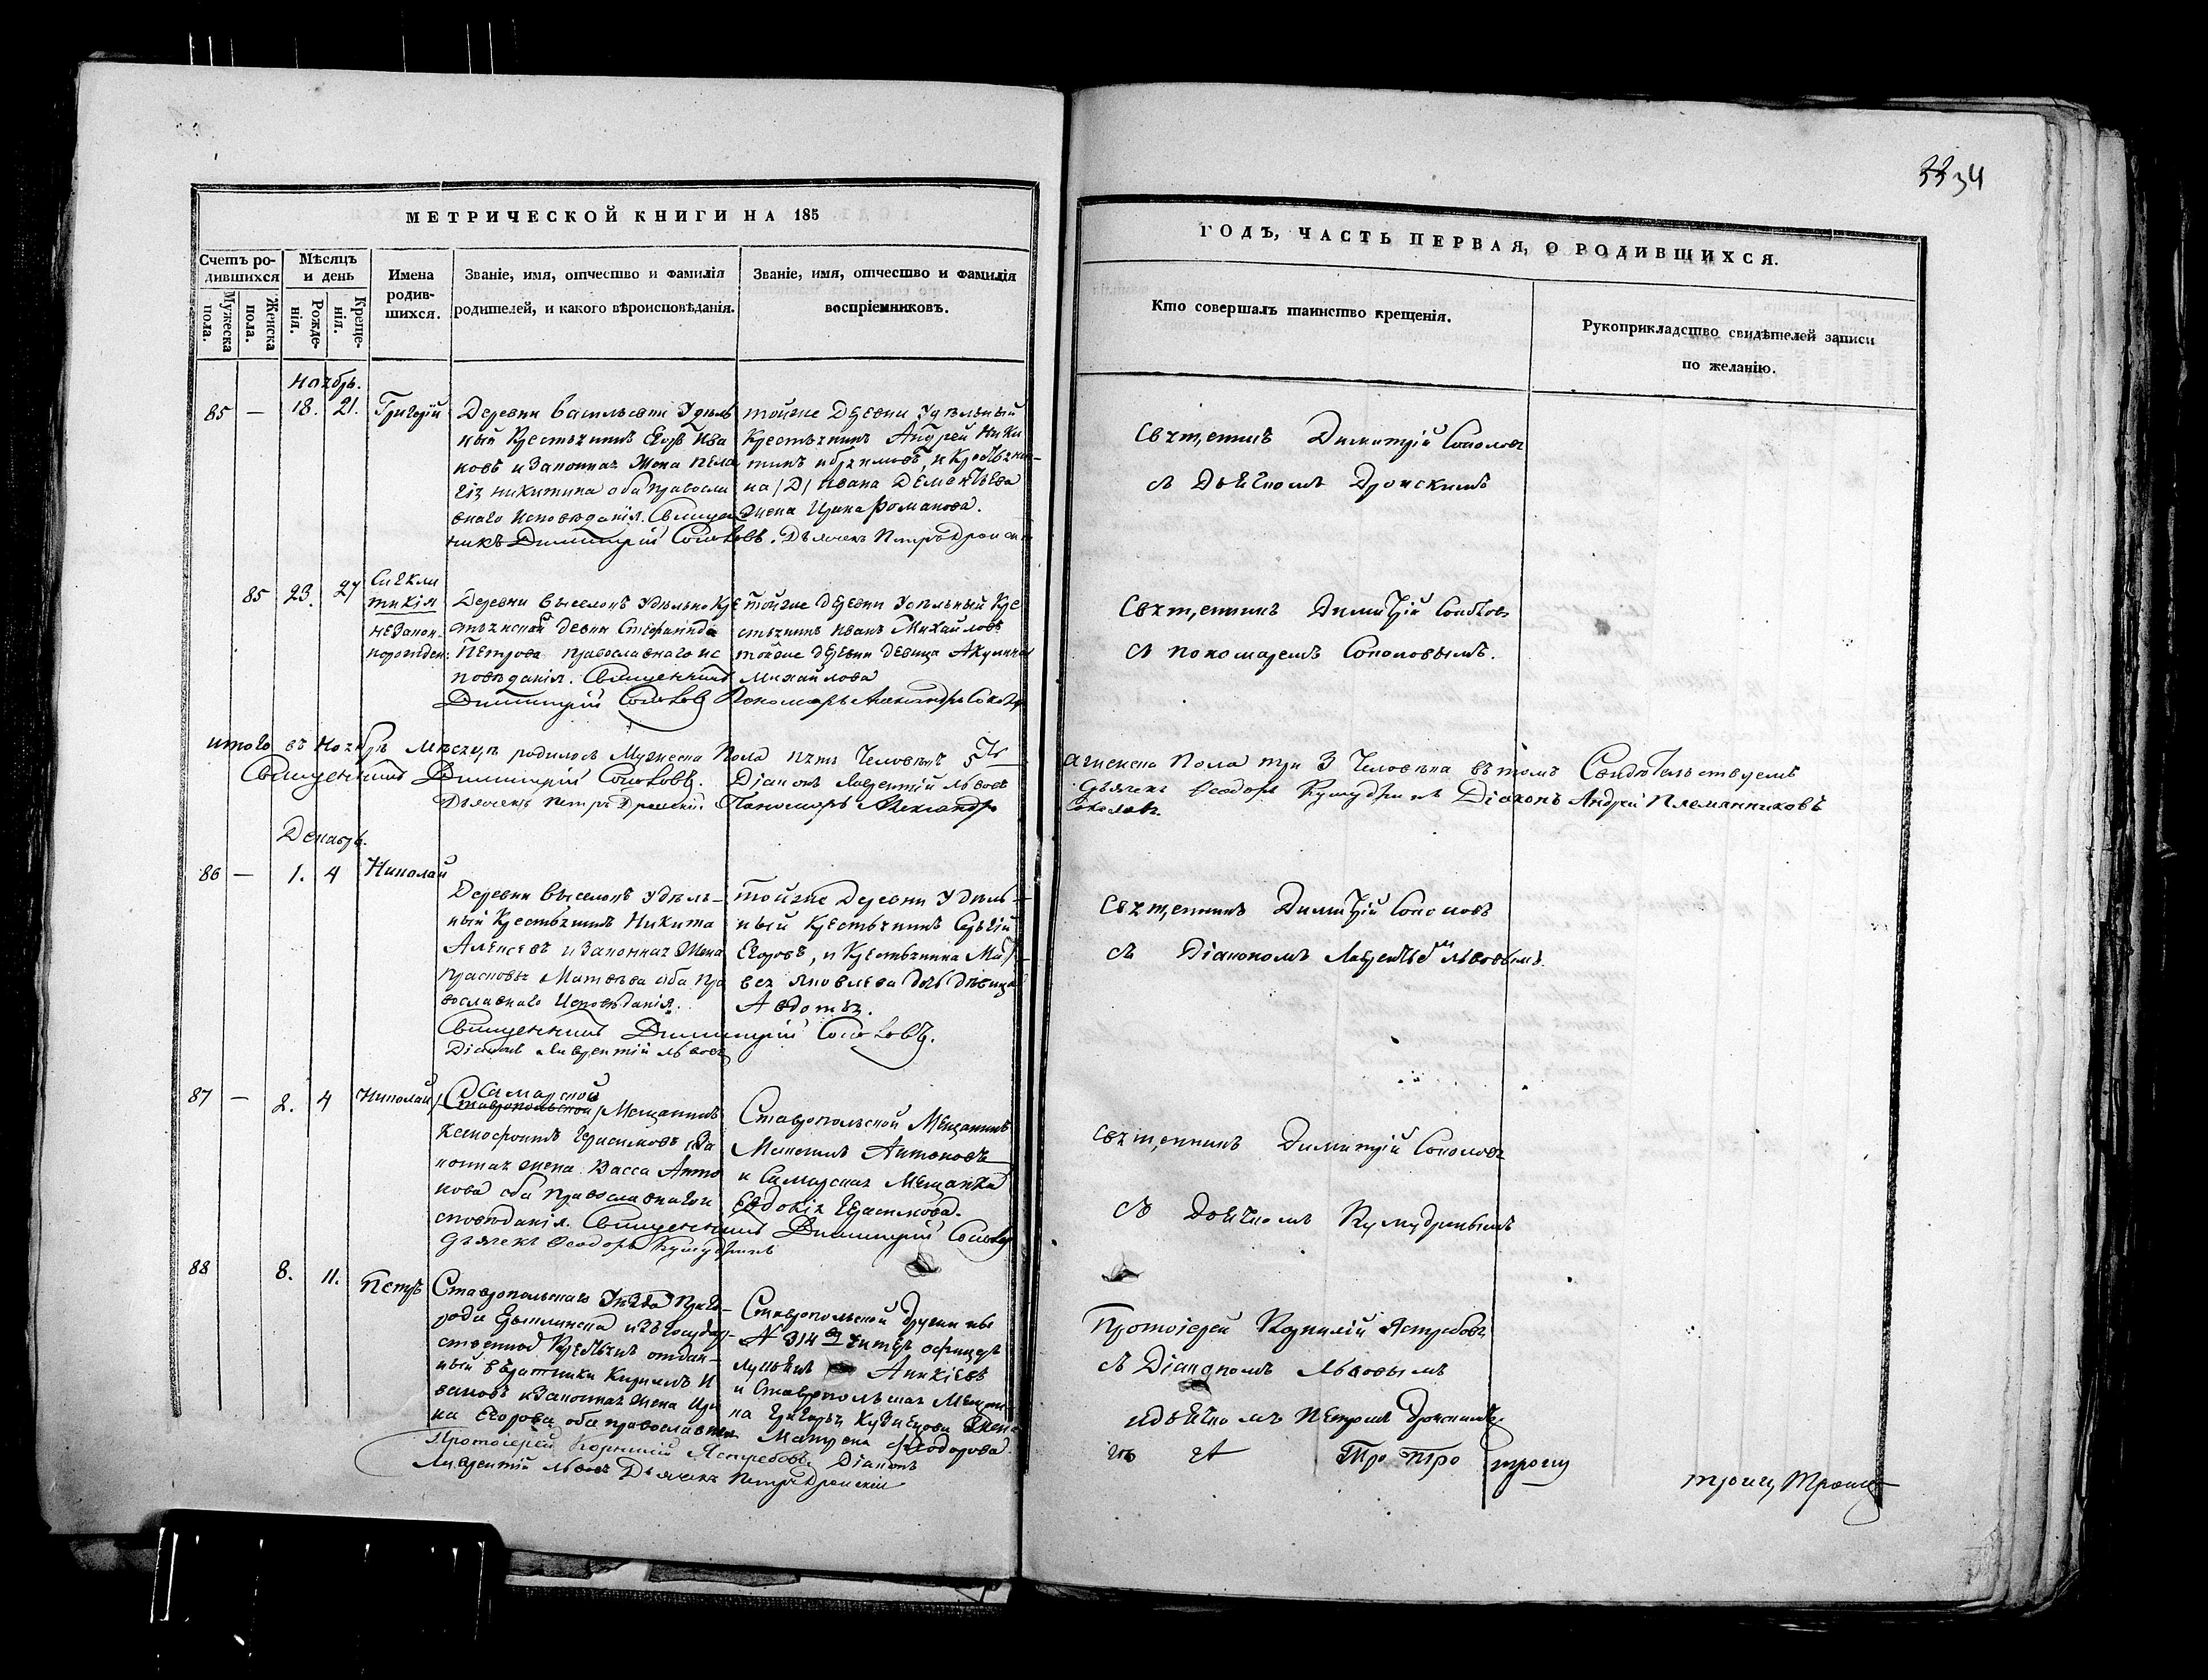 33 34
МЕТРИЧЕСКОЙ КНИГИ НА 185
ГОДЪ, ЧАСТЬ ПЕРВАЯ, О РОДИВШИХСЯ.
Счетъ ро-
дившихся
Мужеска пола.
Женска пола.
Мѣсяцъ
и день
Рожде-
нія.
Креще-
нія.
Имена
родив-
шихся.
Званіе, имя, отчество и фамилія
родителей, и какого вѣроисповѣданія.
Званіе, имя, отчество и фамилія
воспріемниковъ.
Кто совершалъ таинство крещенія.
Рукоприкладство свидѣтелей записи
по желанію.
Ноябрь.
85 — 18. 21. Григорій
Деревни Васильевки Удѣль
ный Крестьянинъ Егоръ Ива
новъ и Законная Жена Пела
гія Никитина оба Правосла
внаго Исповѣданія. Священ
никъ Димитрій Соколовъ. Дьячекъ Петръ Дронскій
тойже Деревни Удѣльный
Крестьянинъ Андрей Ники
тинъ, и Крестьяни
на /Д/ Ивана Дементьева
Жена Ирина Романова.
Священникъ Димитрій Соколовъ
съ Дьячкомъ Дронскимъ
85 23. 27 Сигкли
тикія
незакон.
норожден:
Деревни Выселокъ Удѣльно Кре
стьянской девки Стефанида
Петрова православнаго ис
повѣданія. Священникъ
Димитрій Соколовъ Пономарь Александръ Соколовъ
тойже деревни Удѣльный Кре
стьянинъ Иванъ Михайловъ
тойже деревни девица Акулина
Михайлова
Священникъ Димитрій Соколовъ
съ пономаремъ Соколовымъ.
итого въ Ноябрѣ Мѣсяцѣ родилось Мужеска Пола пять Человѣкъ 5 ть
а женска Пола три 3 Человѣка въ томъ Свидѣтельствуемъ
Священникъ Димитрій Соколовъ. Діаконъ Лаврентій Львовъ
Дьячекъ Ѳеодоръ Кумудринъ Діаконъ Андрей Племянниковъ
Дьячекъ Петръ Дронскій Пономарь Александръ
Соколовъ.
Декабрь.
86 — 1. 4 Николай
Деревни Выселокъ Удѣль-
ный Крестьянинъ Никита
Алексеевъ и Законная Жена
Прасковья Матвѣева оба Пра
вославнаго Исповѣданія.
Священникъ Димитрій Соколовъ.
Діаконъ Лаврентій Львовъ
тойже Деревни Удѣль-
ный Крестьянинъ Сергій
Егоровъ, и Крестьянина Мат
вея Яковлева дочь дѣвица
Авдотья.
Священникъ Димитрій Соколовъ
съ Діакономъ Лаврентьемъ Львовымъ.
87 — 2. 4 Николай
Самарской
Ставропольской Мещанинъ
Ксенофонтъ Герасимовъ и За
конная жена Васса Анто
нова оба Православнаго и
сповѣданія. Священникъ Димитрій Соколовъ
Дьячекъ Ѳеодоръ Кумудринъ
Ставропольской Мещанинъ
Антоновъ
и Самарская Мещанка
Евдокія Герасимова.
Священникъ Димитрій Соколовъ
съ Дьячкомъ Кумудринымъ
88 8. 11. Петръ
Ставропольскаго Уезда Приго-
рода Ерыклинска изъ Государ-
ственной Крестьянъ отдан-
ный въ Ратники Кирилъ И
вановъ и Законная Жена Ири
на Егорова оба православна
Протоіерей Корнилій Ястребовъ Діаконъ
Лаврентій Львовъ Дьячекъ Петръ Дронскій
Ставропольской Дружины
N 314 офицеръ
Аникіевъ
и Ставропольская Мещан
на Григорья Кузнецова Жена
Матрена Ѳеодорова.
Протоіерей Корнилій Ястребовъ
съ Діакономъ Львовымъ
и дьячкомъ Петромъ Дронскимъ.
Тро Тро троиц
троиц, Троиц